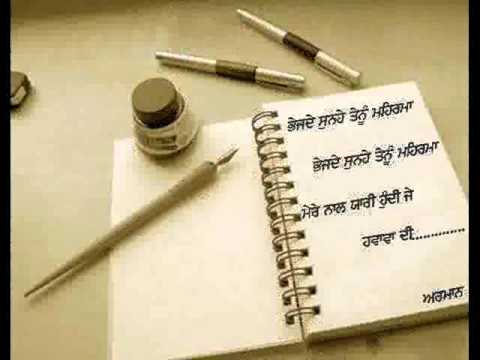 ਭੇਜਦੇ ਸੁਨਹੇ ਤੈਨੂੰ ਮਹਿਰਮਾ
ਭੇਜਦੇ ਸੁਨਹੇ ਤੈਨੂੰ ਮਹਿਰਮਾ
ਮੇਰੇ ਨਾਲ ਯਾਰੀ ਹੁੰਦੀ ਜੇ
ਹਵਾਵਾ ਦੀ.............
ਅਰਮਾਨ